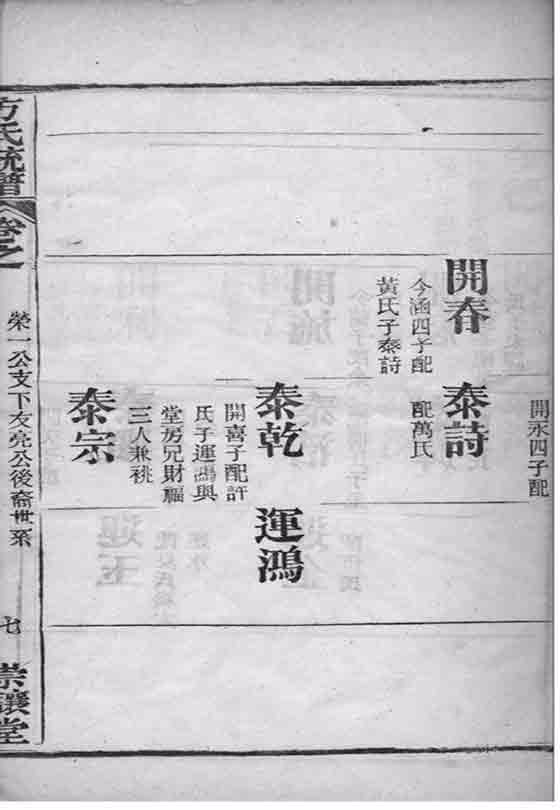 開永四子配
開春
今涵四子配
黃氏子泰詩
泰詩
配萬氏
泰乾
開喜子配許
氏子運鴻與
堂房兄財福
三人兼祧
運鴻
泰宗
方氏統譜
卷之
榮一公支下友亮公後裔世系
七
崇讓堂